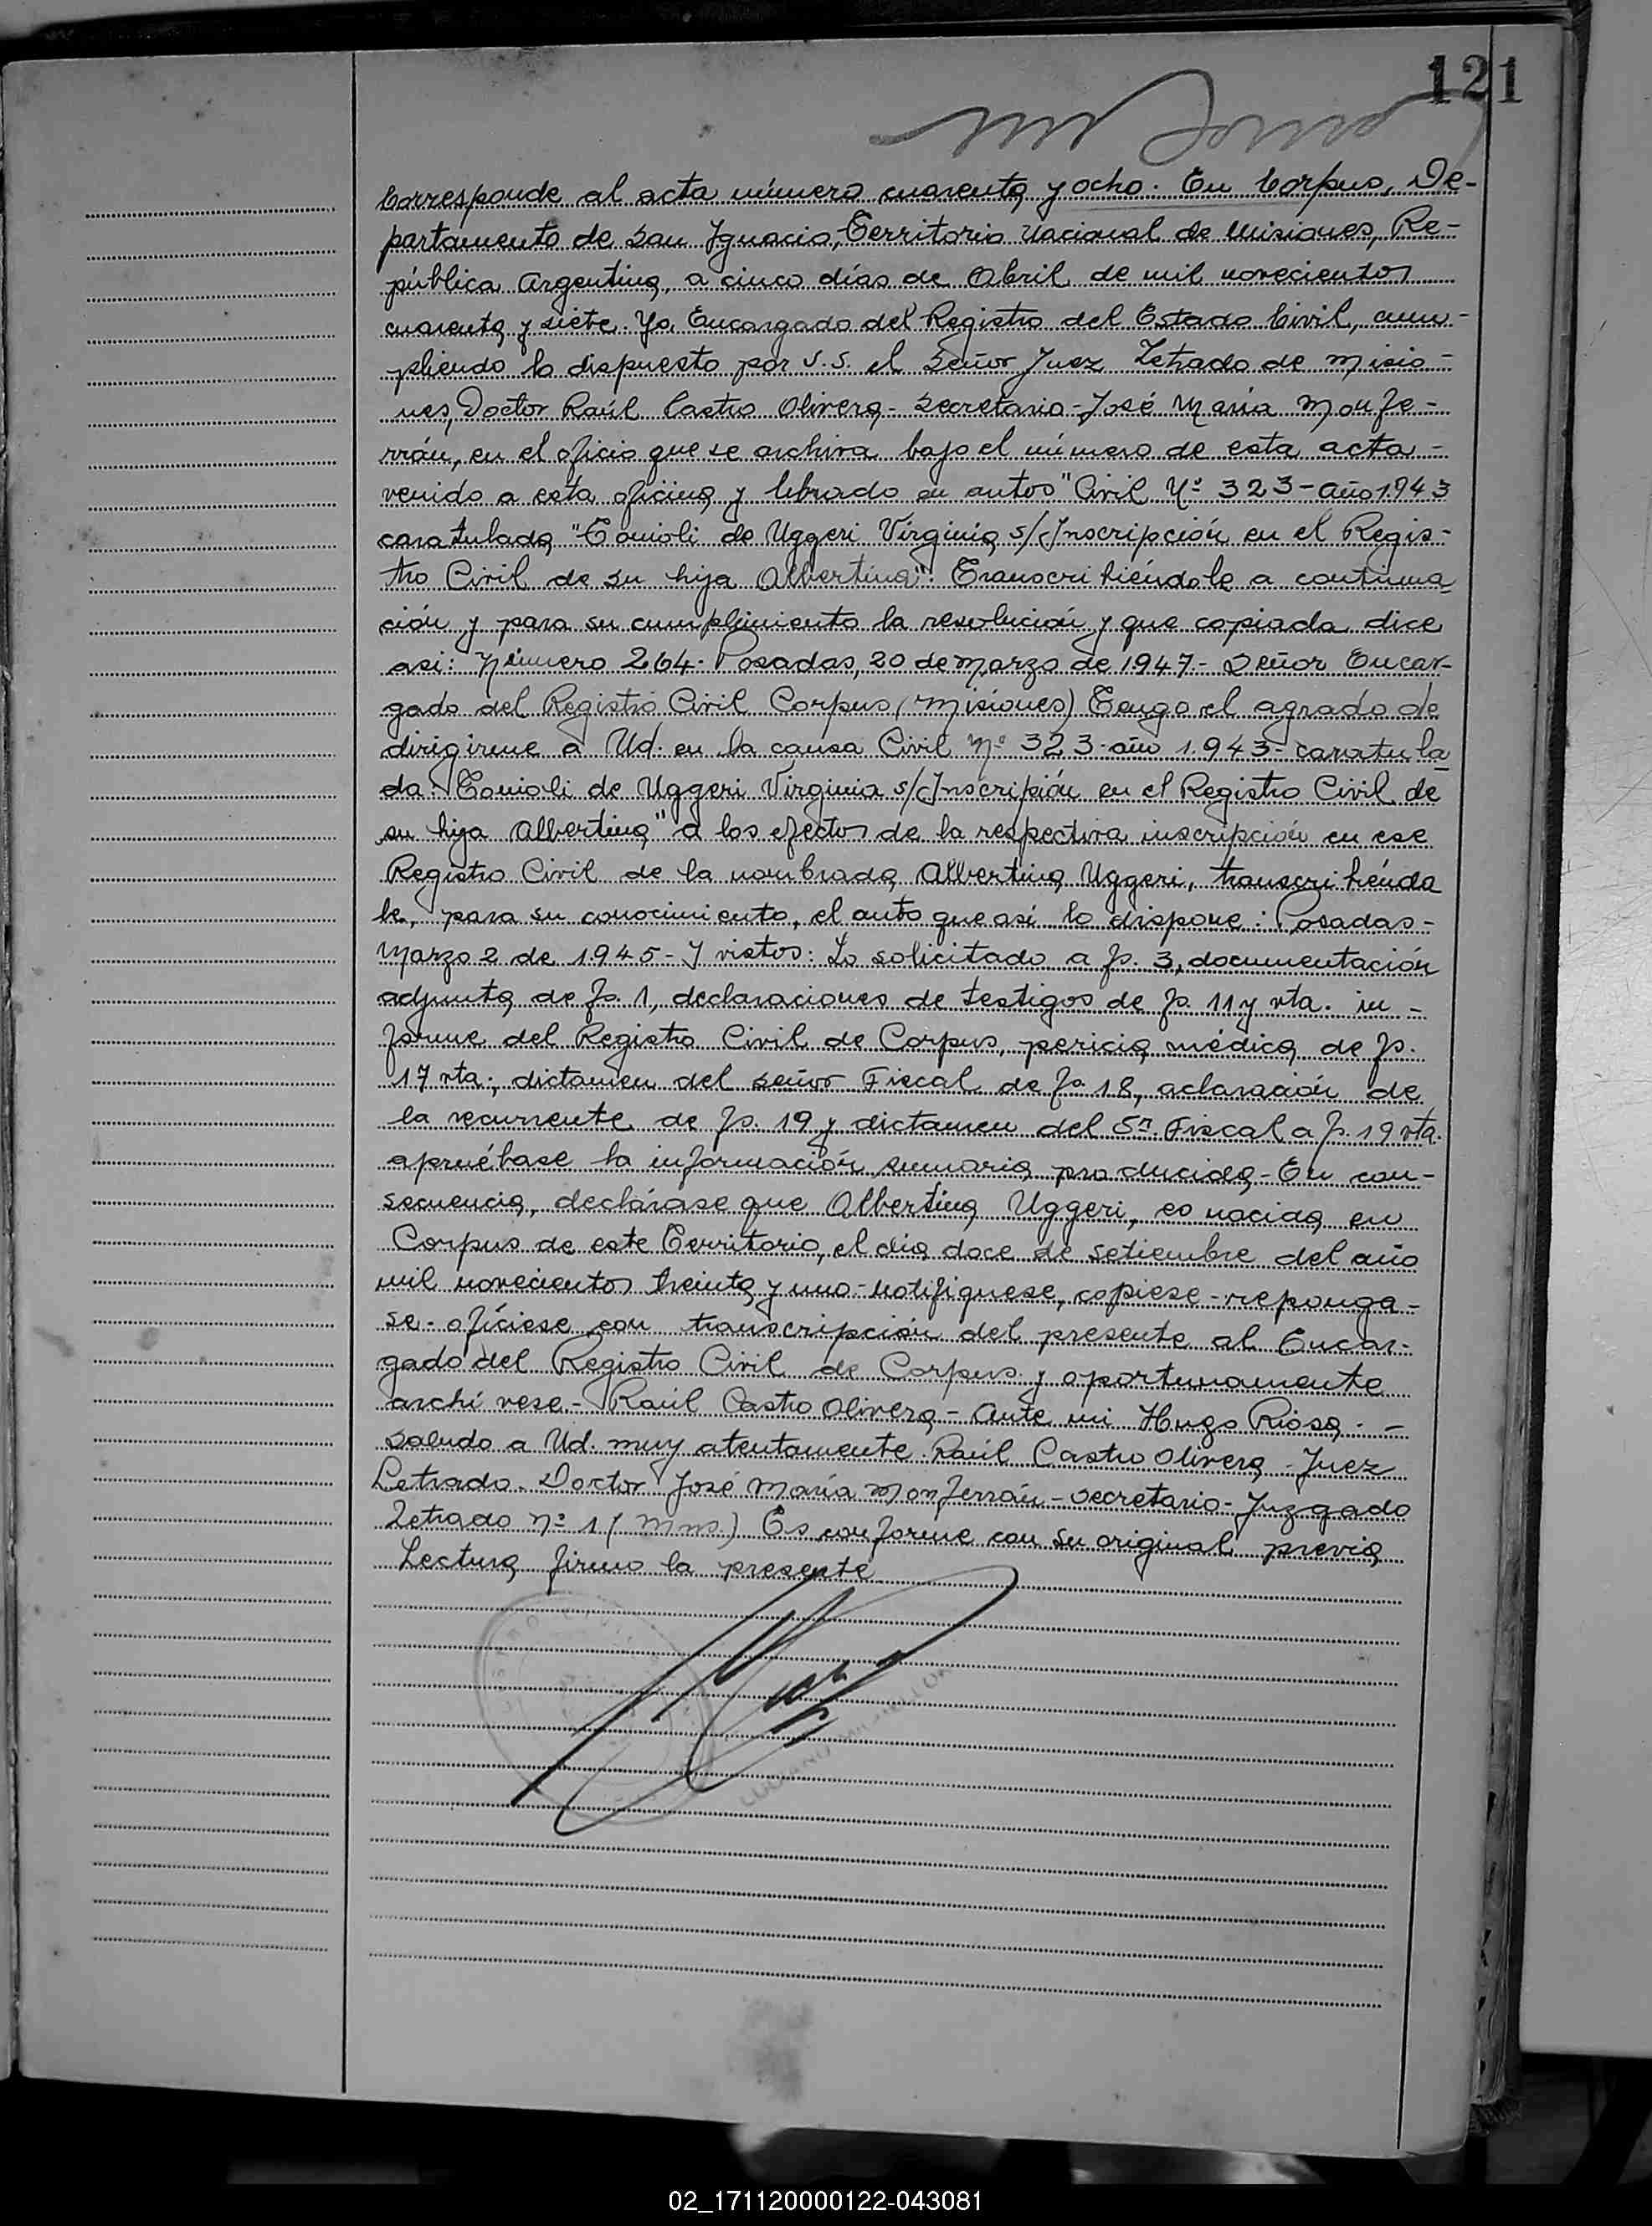 121
Corresponde al acta número cuarenta y ocho. En Corpus, De-
partamento de San Ignacio, Territorio Nacional de Misiones, Re-
pública Argentina, a cinco días de Abril de mil novecientos
cuarenta y siete. Yo Encargado del Registro del Estado Civil, cum-
pliendo lo dispuesto por S.S. el Señor Juez Letrado de Misio-
nes, Doctor Raúl Castro Olivera - Secretario - José María Monfe-
rrán, en el oficio que se archiva bajo el número de esta acta -
venido a esta oficina y librado en autos "Civil Nº 323 - año 1.943
caratulada "Comioli de Uggeri Virginia s/Inscripción en el Regis-
tro Civil de su hija Albertina": Transcribiéndole a continua
ción y para su cumplimiento la resolución y que copiada dice
asi: Número 264. Posadas, 20 de Marzo de 1.947.- Señor Encar-
gado del Registro Civil Corpus (Misiones) Tengo el agrado de
dirigirme a Ud. en la causa Civil Nº 323 - año 1.943 - caratula
da: Comioli de Uggeri Virginia s/Inscripión en el Registro Civil de
su hija Albertina" a los efectos de la respectiva inscripción en ese
Registro Civil de la nombrada Albertina Uggeri, transcribiénda
le, para su conocimiento, el auto que así lo dispone: Posadas -
Marzo 2 de 1.945 - Y vistos: Lo solicitado a fs. 3, documentación
adjunta de fs. 1, declaraciones de testigos de fs. 11 y vta. in -
forme del Registro Civil de Corpus, pericia médica de fs.
17 vta:, dictamen del señor Fiscal de fs 18, aclaración de
la recurrente de fs. 19 y dictamen del Sr. Fiscal a fs. 19 vta.
apruébase la información sumaria producida - En con-
secuencia, declárase que Albertina Uggeri, es nacida en
Corpus de este Territorio, el día doce de setiembre del año
mil novecientos treinta y uno - notifiquese, copiese - reponga -
se - ofíciese con transcripción del presente al Encar-
gado del Registro Civil de Corpus y oportunamente
archivese - Raúl Castro Olivera - Ante mi Hugo Riosa. -
Saludo a Ud. muy atentamente. Raúl Castro Olivera - Juez
Letrado. Doctor José María Monferrán - Secretario - Juzgado
Letrado Nº 1 (Mnes.) Es conforme con su original previa
Lectura firmo la presente
02_171120000122-043081